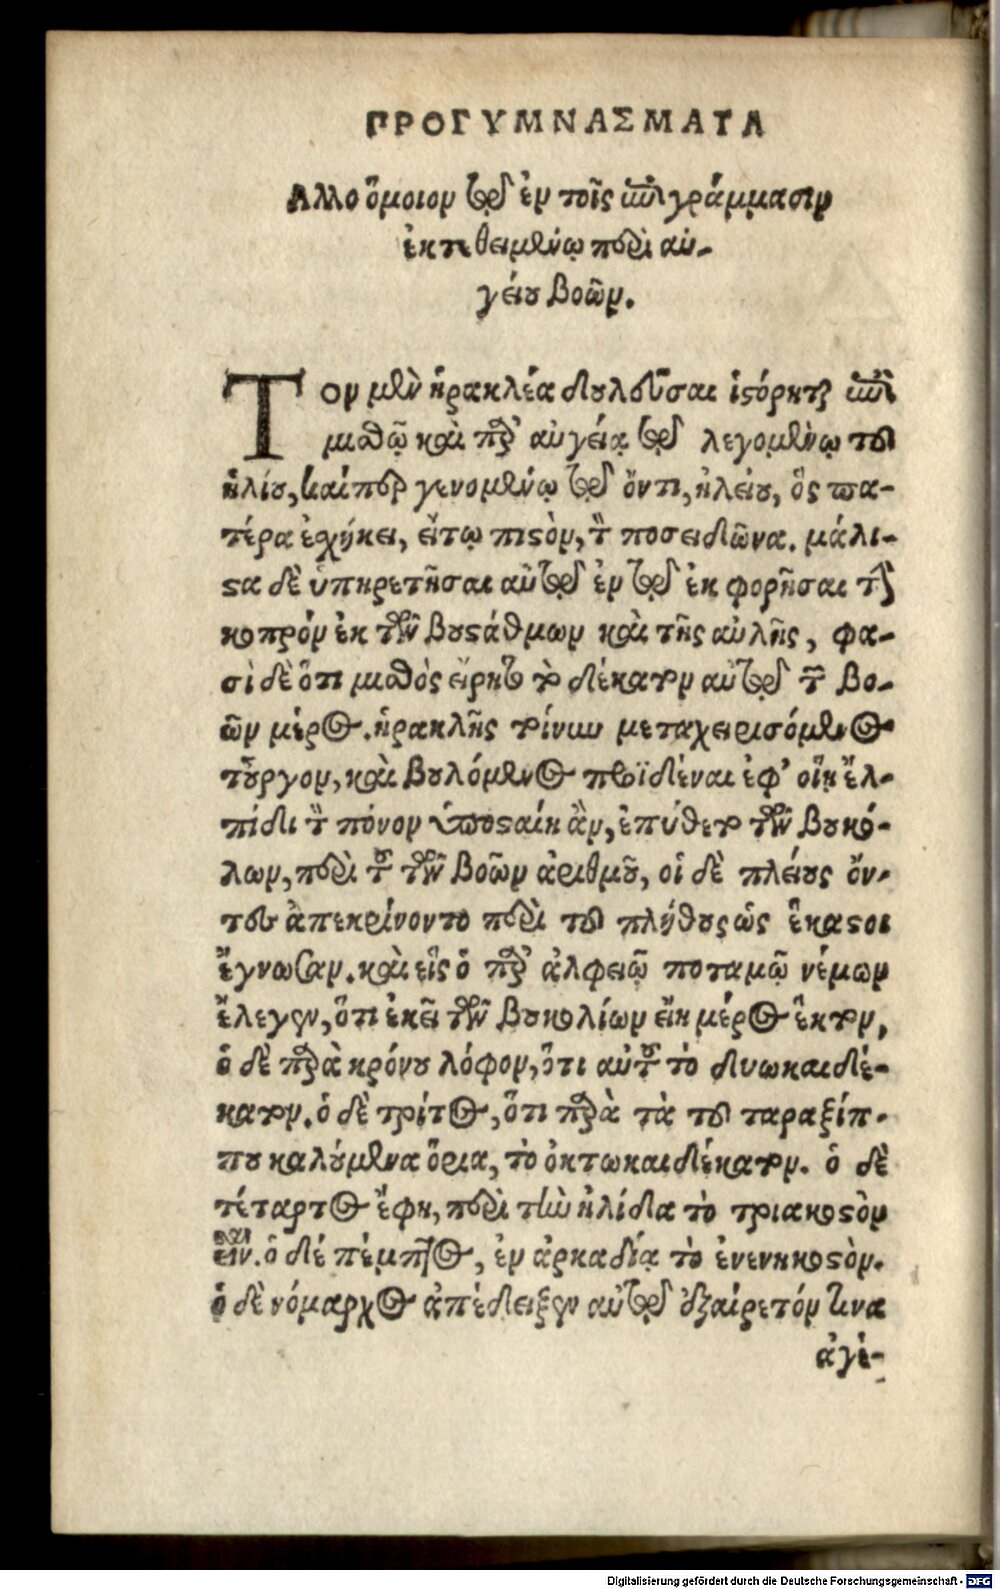 ΠΡΟΓΥΜΝΑΣΜΑΤΑ
Αλλο ὅμοιον τῷ ἐν τοῖς ἐπιγράμμασιν
ἐκτιθειμένῳ περὶ αὐ-
γείου βοῶν.
Τον μὲν ἡρακλέα δουλεῦσαι ἱστόρηται ἐπὶ
μισθῷ καὶ παρ' αὐγείᾳ τῷ λεγομένῳ τοῦ
ἡλίου, καίπερ γενομένῳ τῷ ὄντι, ἠλείου, ὃς πα-
τέρα ἐχήκει, εἴτῳ πιστὸν, τὸν ποσειδῶνα. μάλι-
στα δὲ ὑπηρετῆσαι αὐτῷ ἐν τῷ ἐκφορῆσαι τὴν
κοπρόν ἐκ τῶν βουστάθμων καὶ τῆς αὐλῆς, φα-
σὶ δὲ ὅτι μισθὸς εἴρητο τὸ δέκατον αὐτῷ τῶν βο-
ῶν μέρος. ἡρακλῆς τοίνυν μεταχειρισόμενος
τοὖργον, καὶ βουλόμενος προϊδέναι ἐφ' οἵῃ ἐλ-
πίδι τὸν πόνον ὑποσταίη ἂν, ἐπύθετο τῶν βουκό-
λων, περὶ τοῦ τῶν βοῶν ἀριθμοῦ, οἱ δὲ πλείους ὄν-
τες ἀπεκρίνοντο περὶ τοῦ πλήθους ὡς ἕκαστοι
ἔγνωσαν. καὶ εἷς ὁ παρ' ἀλφειῷ ποταμῷ νέμων
ἔλεγεν, ὅτι ἐκεῖ τῶν βουκολίων εἴη μέρος ἕκτον,
ὁ δὲ παρὰ κρόνου λόφον, ὅτι αὐτοῦ τὸ δυωκαιδέ-
κατον. ὁ δὲ τρίτος, ὅτι παρὰ τὰ τοῦ ταραξίπ-
που καλούμενα ὅρια, τὸ ὀκτωκαιδέκατον. ὁ δὲ
τέταρτος ἔφη, περὶ τὴν ἠλίδα τὸ τριακοστὸν
εἶναι. ὁ δέ πέμπτος, ἐν ἀρκαδίᾳ τὸ ἐνενηκοστὸν.
ὁ δὲ νόμαρχος ἀπέδειξεν αὐτῷ ἐξαίρετόν τινα
ἀγέ-
Digitalisierung gefördert durch die Deutsche Forschungsgemeinschaft - DFG